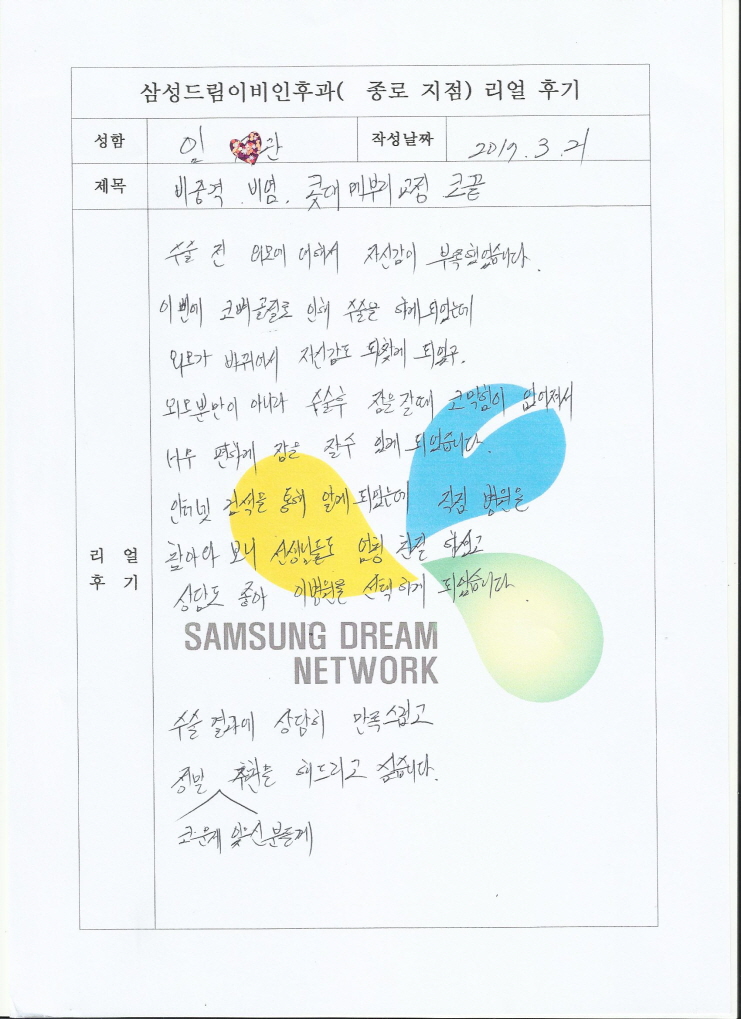 삼성드림이비인후과( 종로 지점) 리얼 후기
성함 임 관 작성날짜 2017. 3. 21
제목 비중격. 비염. 콧대 메부리 교정 코끝
수술 전 외모에 대해서 자신감이 부족했었습니다.
이번에 코뼈골절로 인해 수술을 하게 되었는데
외모가 바뀌어서 자신감도 되찾게 되었구.
외모뿐만이 아니라 수술후 잠을 잘때 코막힘이 없어져서
너무 편하게 잠을 잘수 있게 되었습니다.
인터넷 검색을 통해 알게 되었는데 직접 병원을
리 얼
후 기
찾아와 보니 선생님들도 엄청 친절 하셨고
상담도 좋아 이병원을 선택하게 되었습니다.
SAMSUNG DREAM
NETWORK
수술 결과에 상당히 만족스럽고
정말 추천을 해드리고 싶습니다.
코문제 있으신분들께